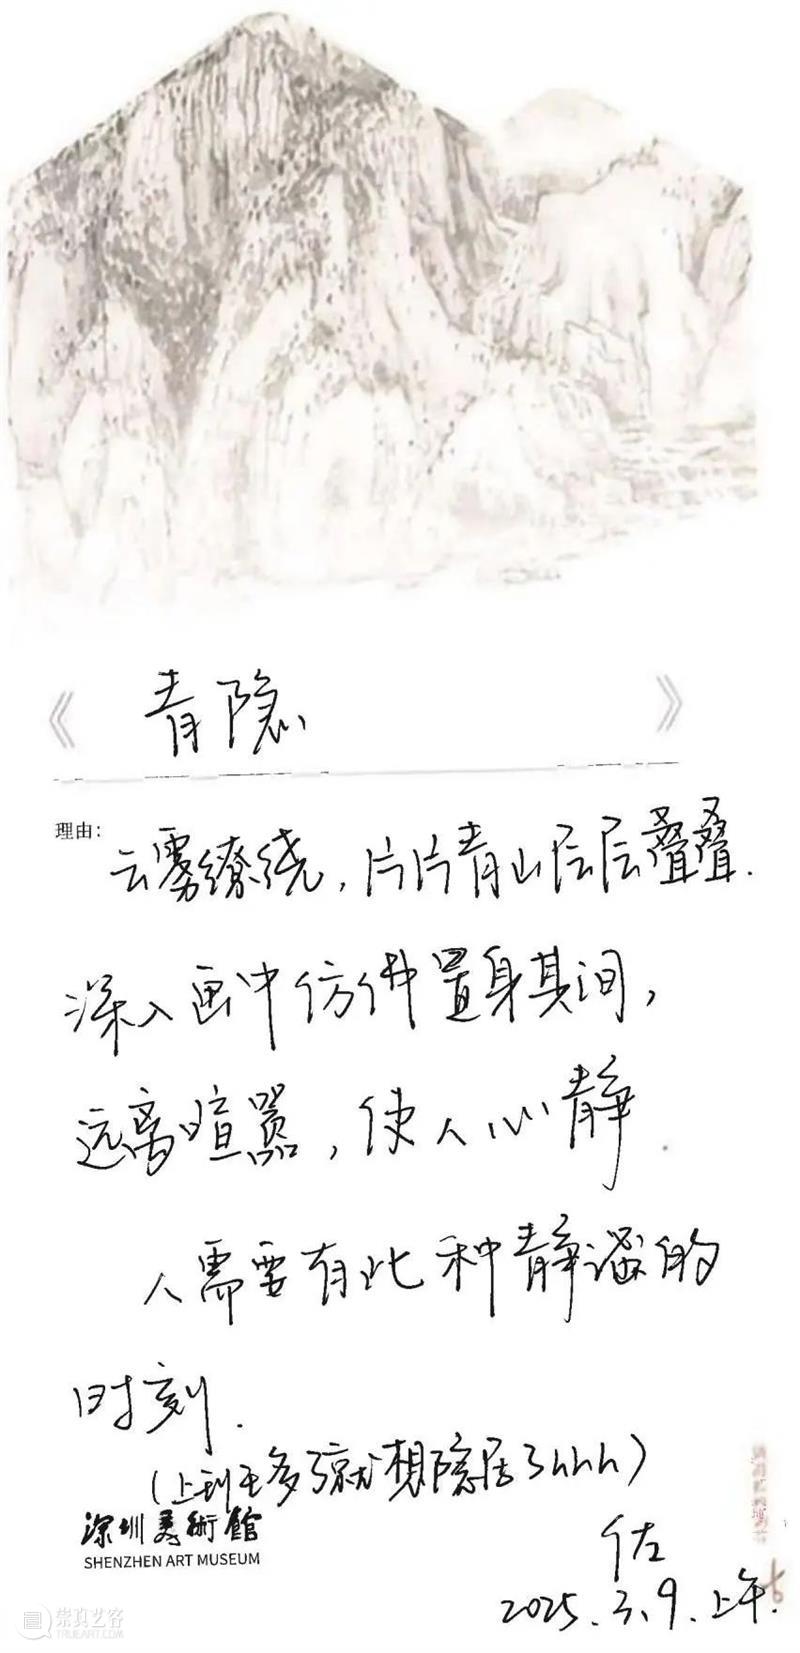 《 青隐 》
理由：
云雾缭绕，片片青山层层叠叠.
深入画中仿佛置身其间，
远离喧嚣，使人心静.
人需要有此种静谧的
时刻.
（上到五多了就想隐居了hhh）
深圳美術館
SHENZHEN ART MUSEUM
佐
2025.3.9.上午.
崇真艺客
TRUEART.COM